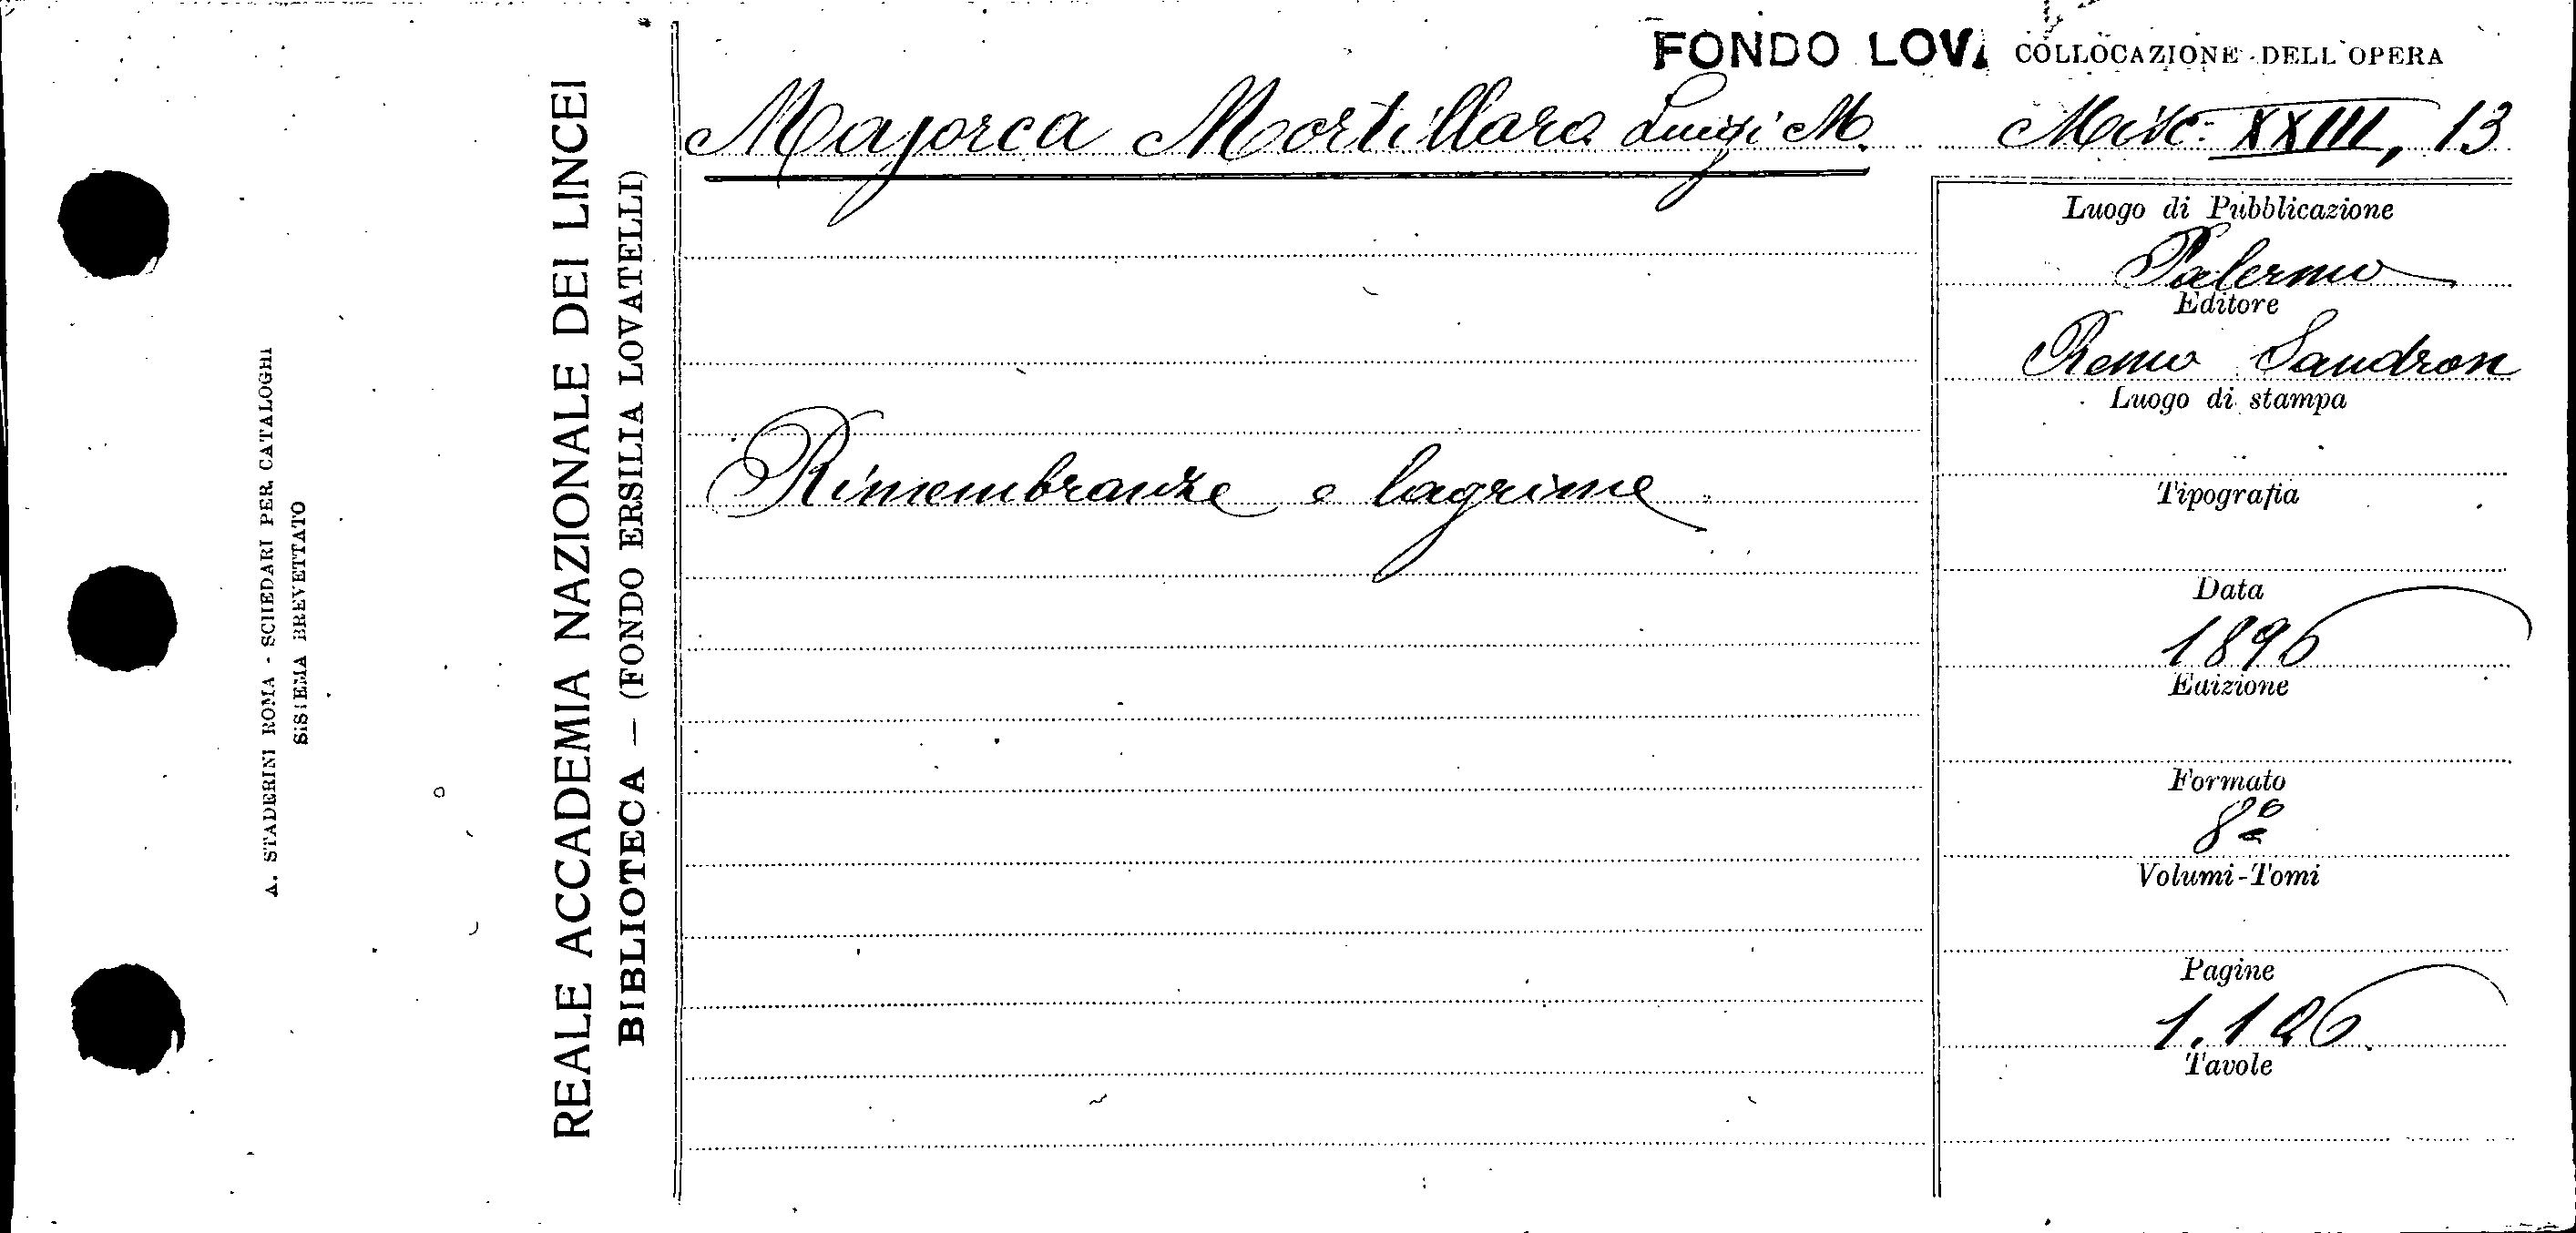 A. STADERINI ROMA - SCHEDARI PER CATALOGHI
SISTEMA BREVETTATO
REALE ACCADEMIA NAZIONALE DEI LINCEI
BIBLIOTECA — (FONDO ERSILIA LOVATELLI)
FONDO LOVA COLLOCAZIONE DELL'OPERA
Majorca Mortillaro Luigi M. Misc. XXIII, 13
Luogo di Pubblicazione
Palermo
Editore
Remo Sandron
Luogo di stampa
Rimembranze e lagrime
Tipografia
Data
1896
Edizione
Formato
8º
Volumi-Tomi
Pagine
1.126
Tavole